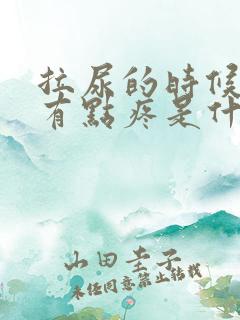 拉尿的時候
有點疼是什
山田圭子
未经同意禁止转载